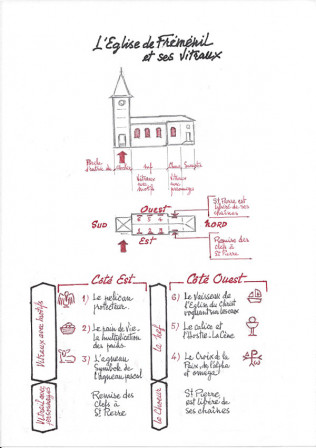 L'Eglise de Fréménil
et ses Vitraux
nef
Vitraux
avec
motifs
Vitraux
avec
personnages
St Pierre est
libéré de ses
chaînes
Ouest
SUD
NORD
Est
Remise des
clefs à
St Pierre
Côté Est
Côté Ouest
Vitraux avec motifs
1) Le pélican
protecteur.
2) Le pain de Vie.
la multiplication
des pains.
3) L'agneau
Symbole de
l'Agneau pascal
la nef
6) Le Vaisseau de
l'Eglise du Christ
voguant sur les eaux
5) Le calice et
l'Hostie. La Cène
4) La Croix de la
Paix, de l'alpha
et omega
Vitrail avec
personnages
Remise des
clefs à
St Pierre
le Choeur
St Pierre
est libéré de
ses chaînes